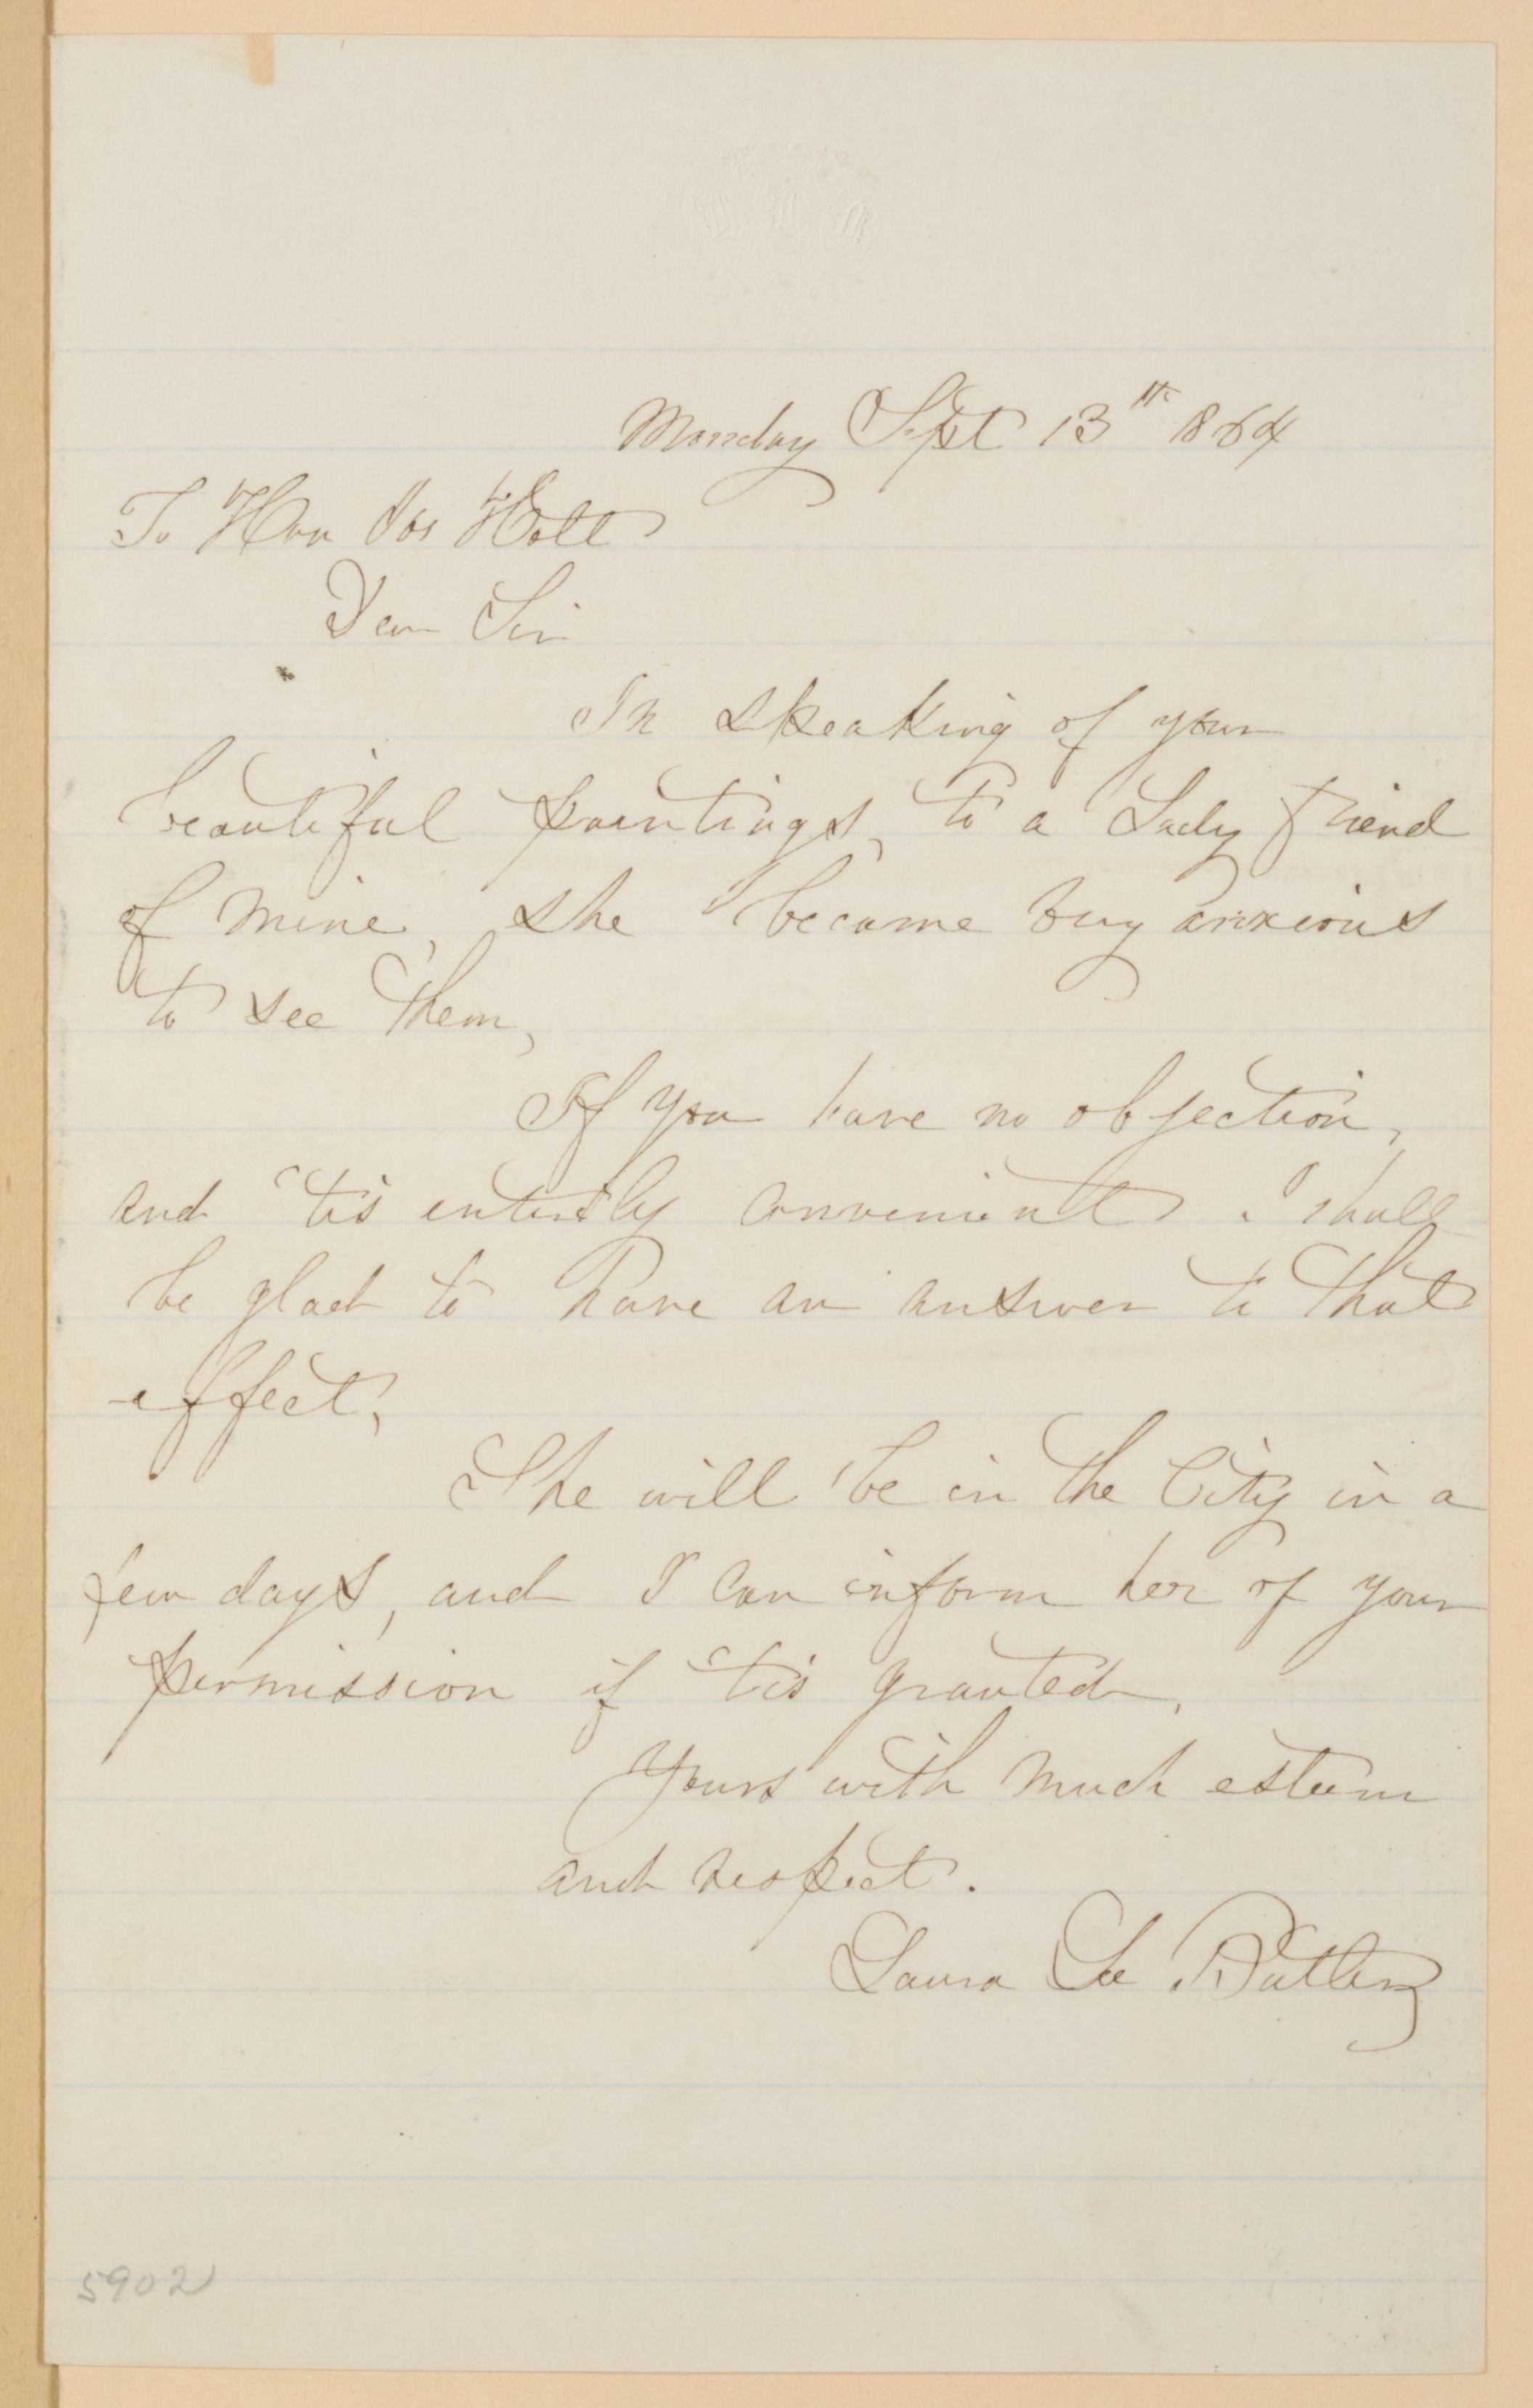 Monday Sept 13th 1864
To Hon Jos Holt
Dear Sir
In speaking of your
beautiful paintings, to a Lady friend
of mine, she became very anxious
to see them,
If you have no objection,
and 'tis entirely convenient, I shall
be glad to have an answer to that
effect,
She will be in the City in a
few days, and I can inform her of your
permission if 'tis granted,
Yours with much esteem
and respect.
Laura Lee
5902